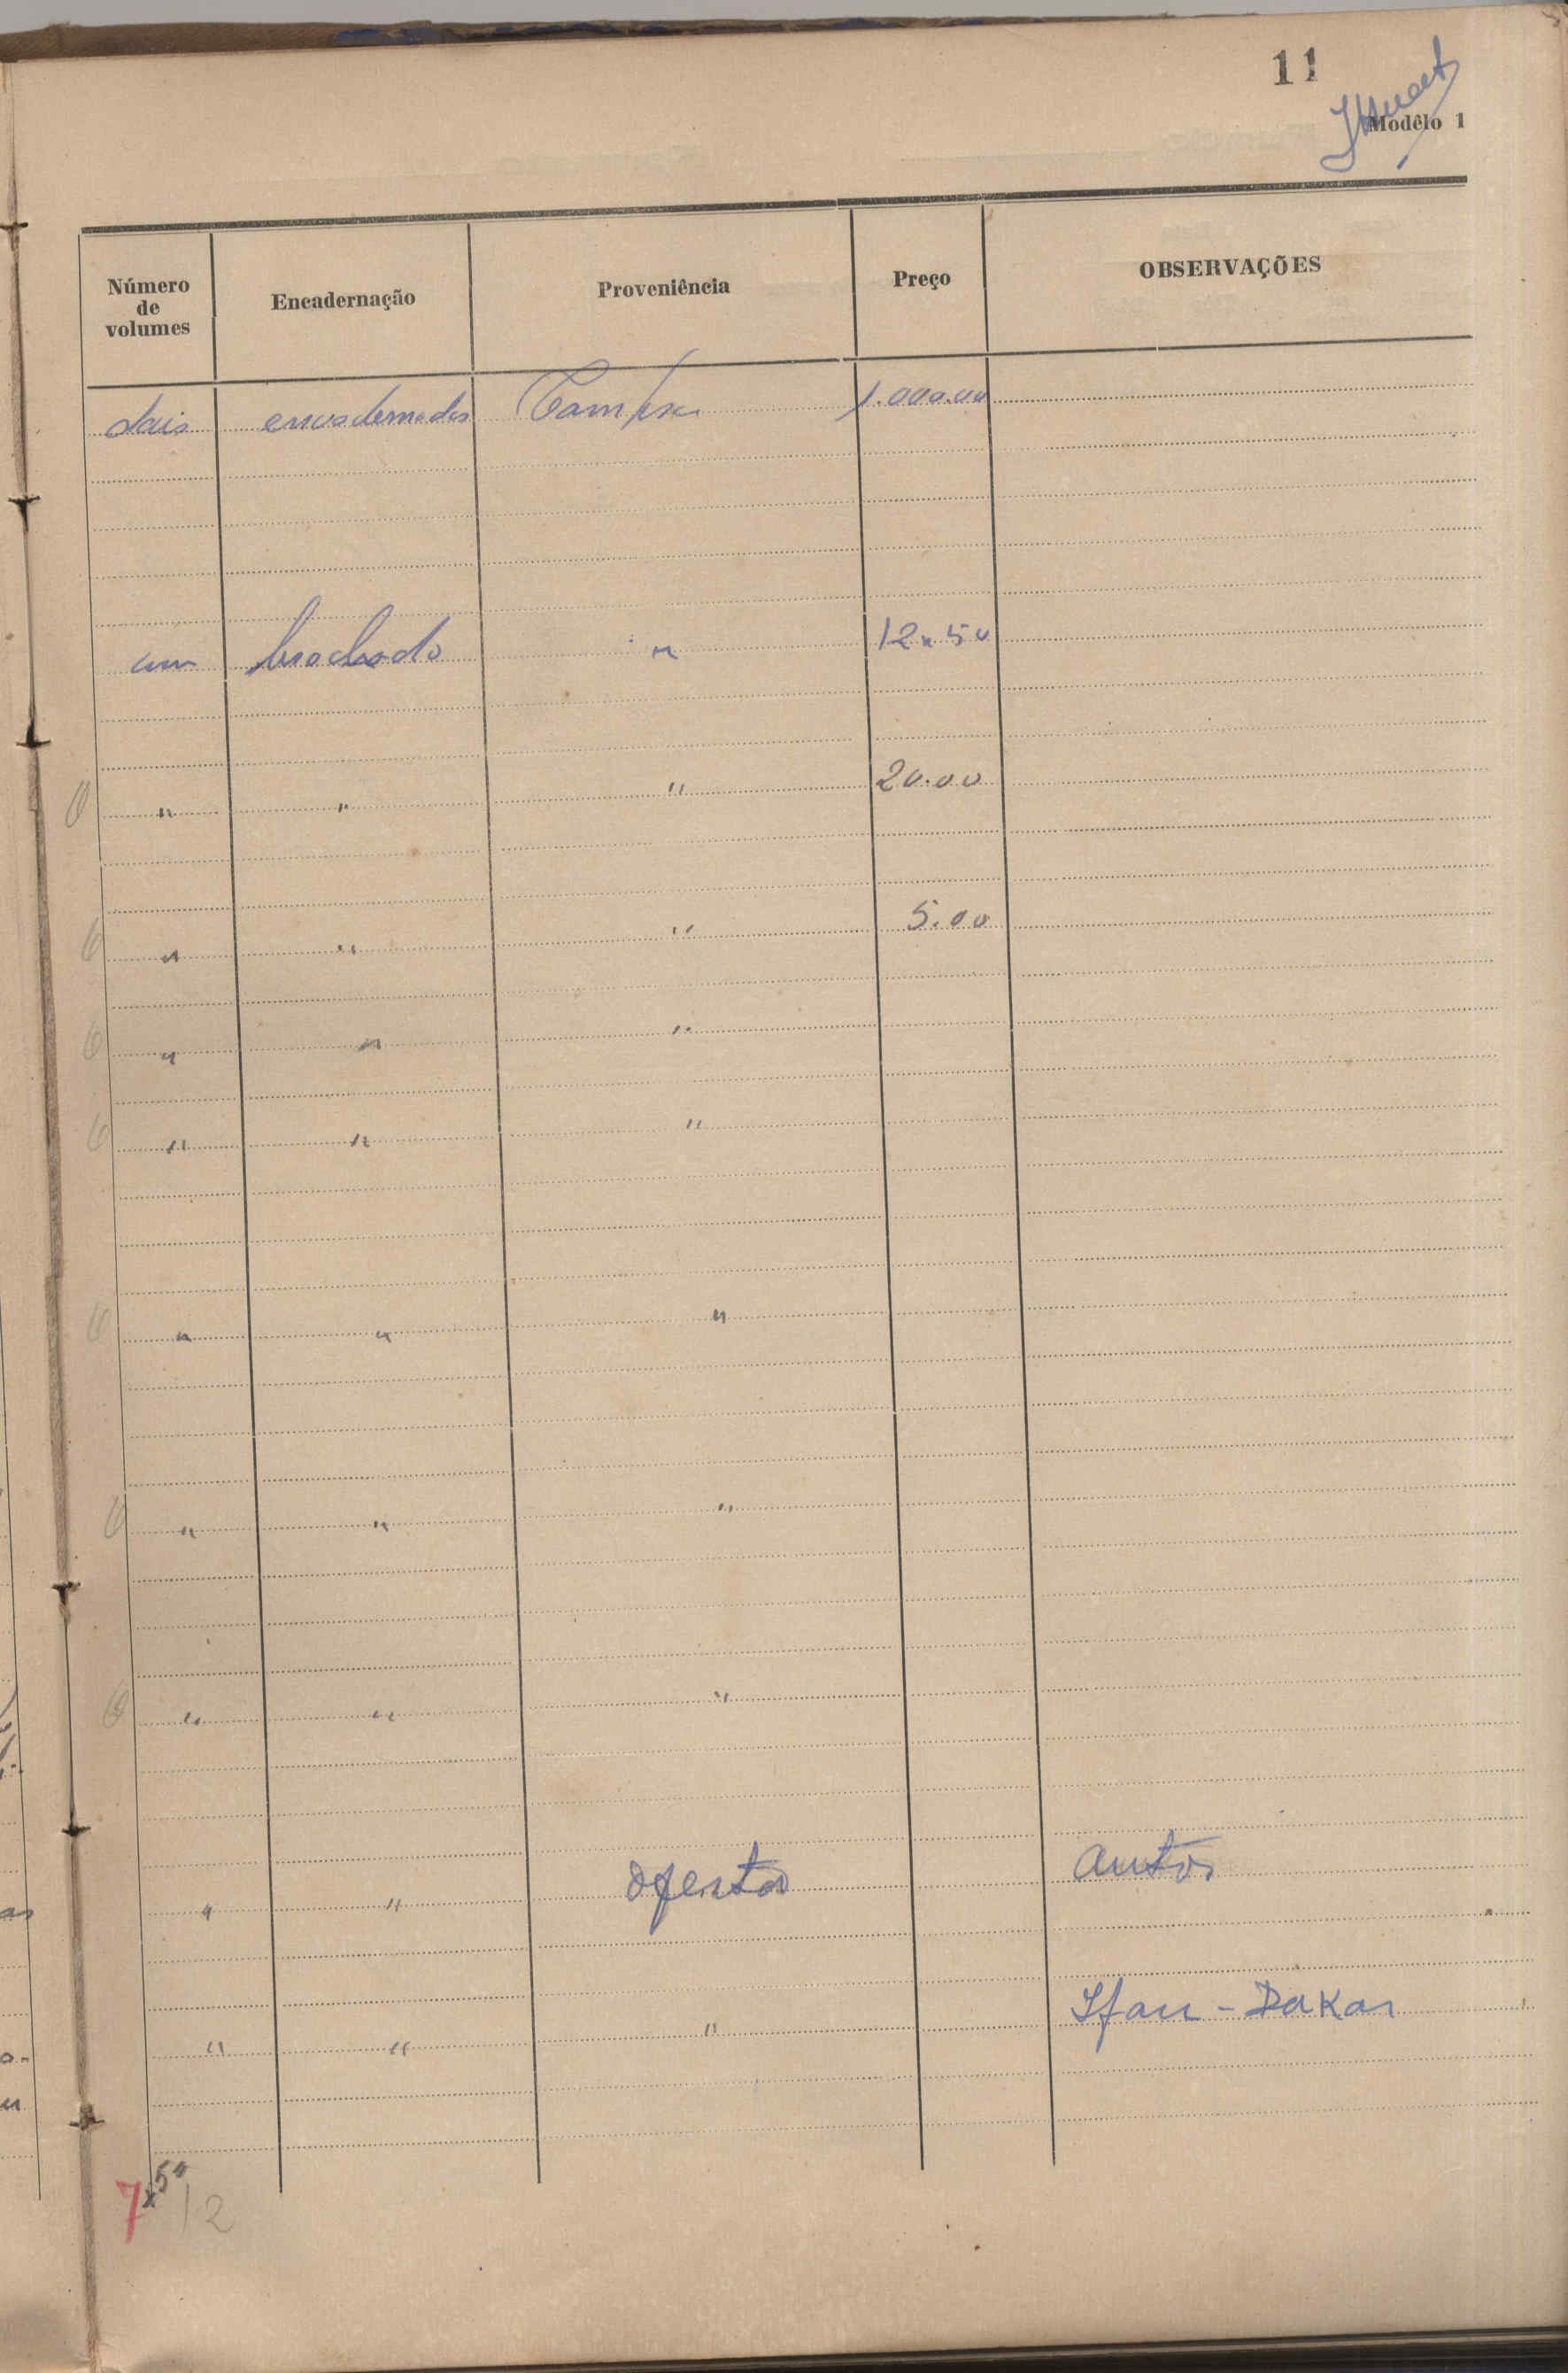 11
Modêlo 1
Número de volumes Encadernação Proveniência Preço OBSERVAÇÕES
dois encadernados 1.000.00
um brochado " 12x50
" " " 20.00
" " " 5.00
" " "
" " "
" " "
" " "
" " "
" " oferta autor
" " " Ifan - Dakar
7x50
12